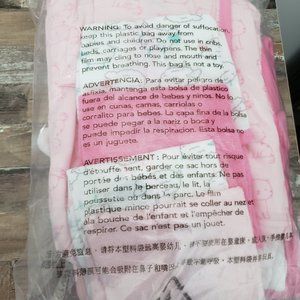 WARNING: To avoid danger of suffocation,
keep this plastic bag away from
babies and children. Do not use in cribs,
beds, carriages or playpens. The thin
film may cling to nose and mouth and
prevent breathing. This bag is not a toy.
ADVERTENCIA: Para evitar peligro de
asfixia, mantenga esta bolsa de plastico
fuera del alcance de bebes y ninos. No lo
use en cunas, camas, carriolas o
corralito para bebes. La capa fina de la bolsa
se puede pegar a la nariz o boca y
puede impedir la respiracion. Esta bolsa no
es un juguete.
AVERTISSEMENT: Pour éviter tout risque
d'étouffement, garder ce sac hors de
portée des bébés et des enfants. Ne pas
utiliser dans le berceau, le lit, la
poussette ou dans le parc. Le film
plastique mince pourrait se coller au nez et
a la bouche de l'enfant et l'empêcher de
respirer. Ce sac n'est pas un jouet.